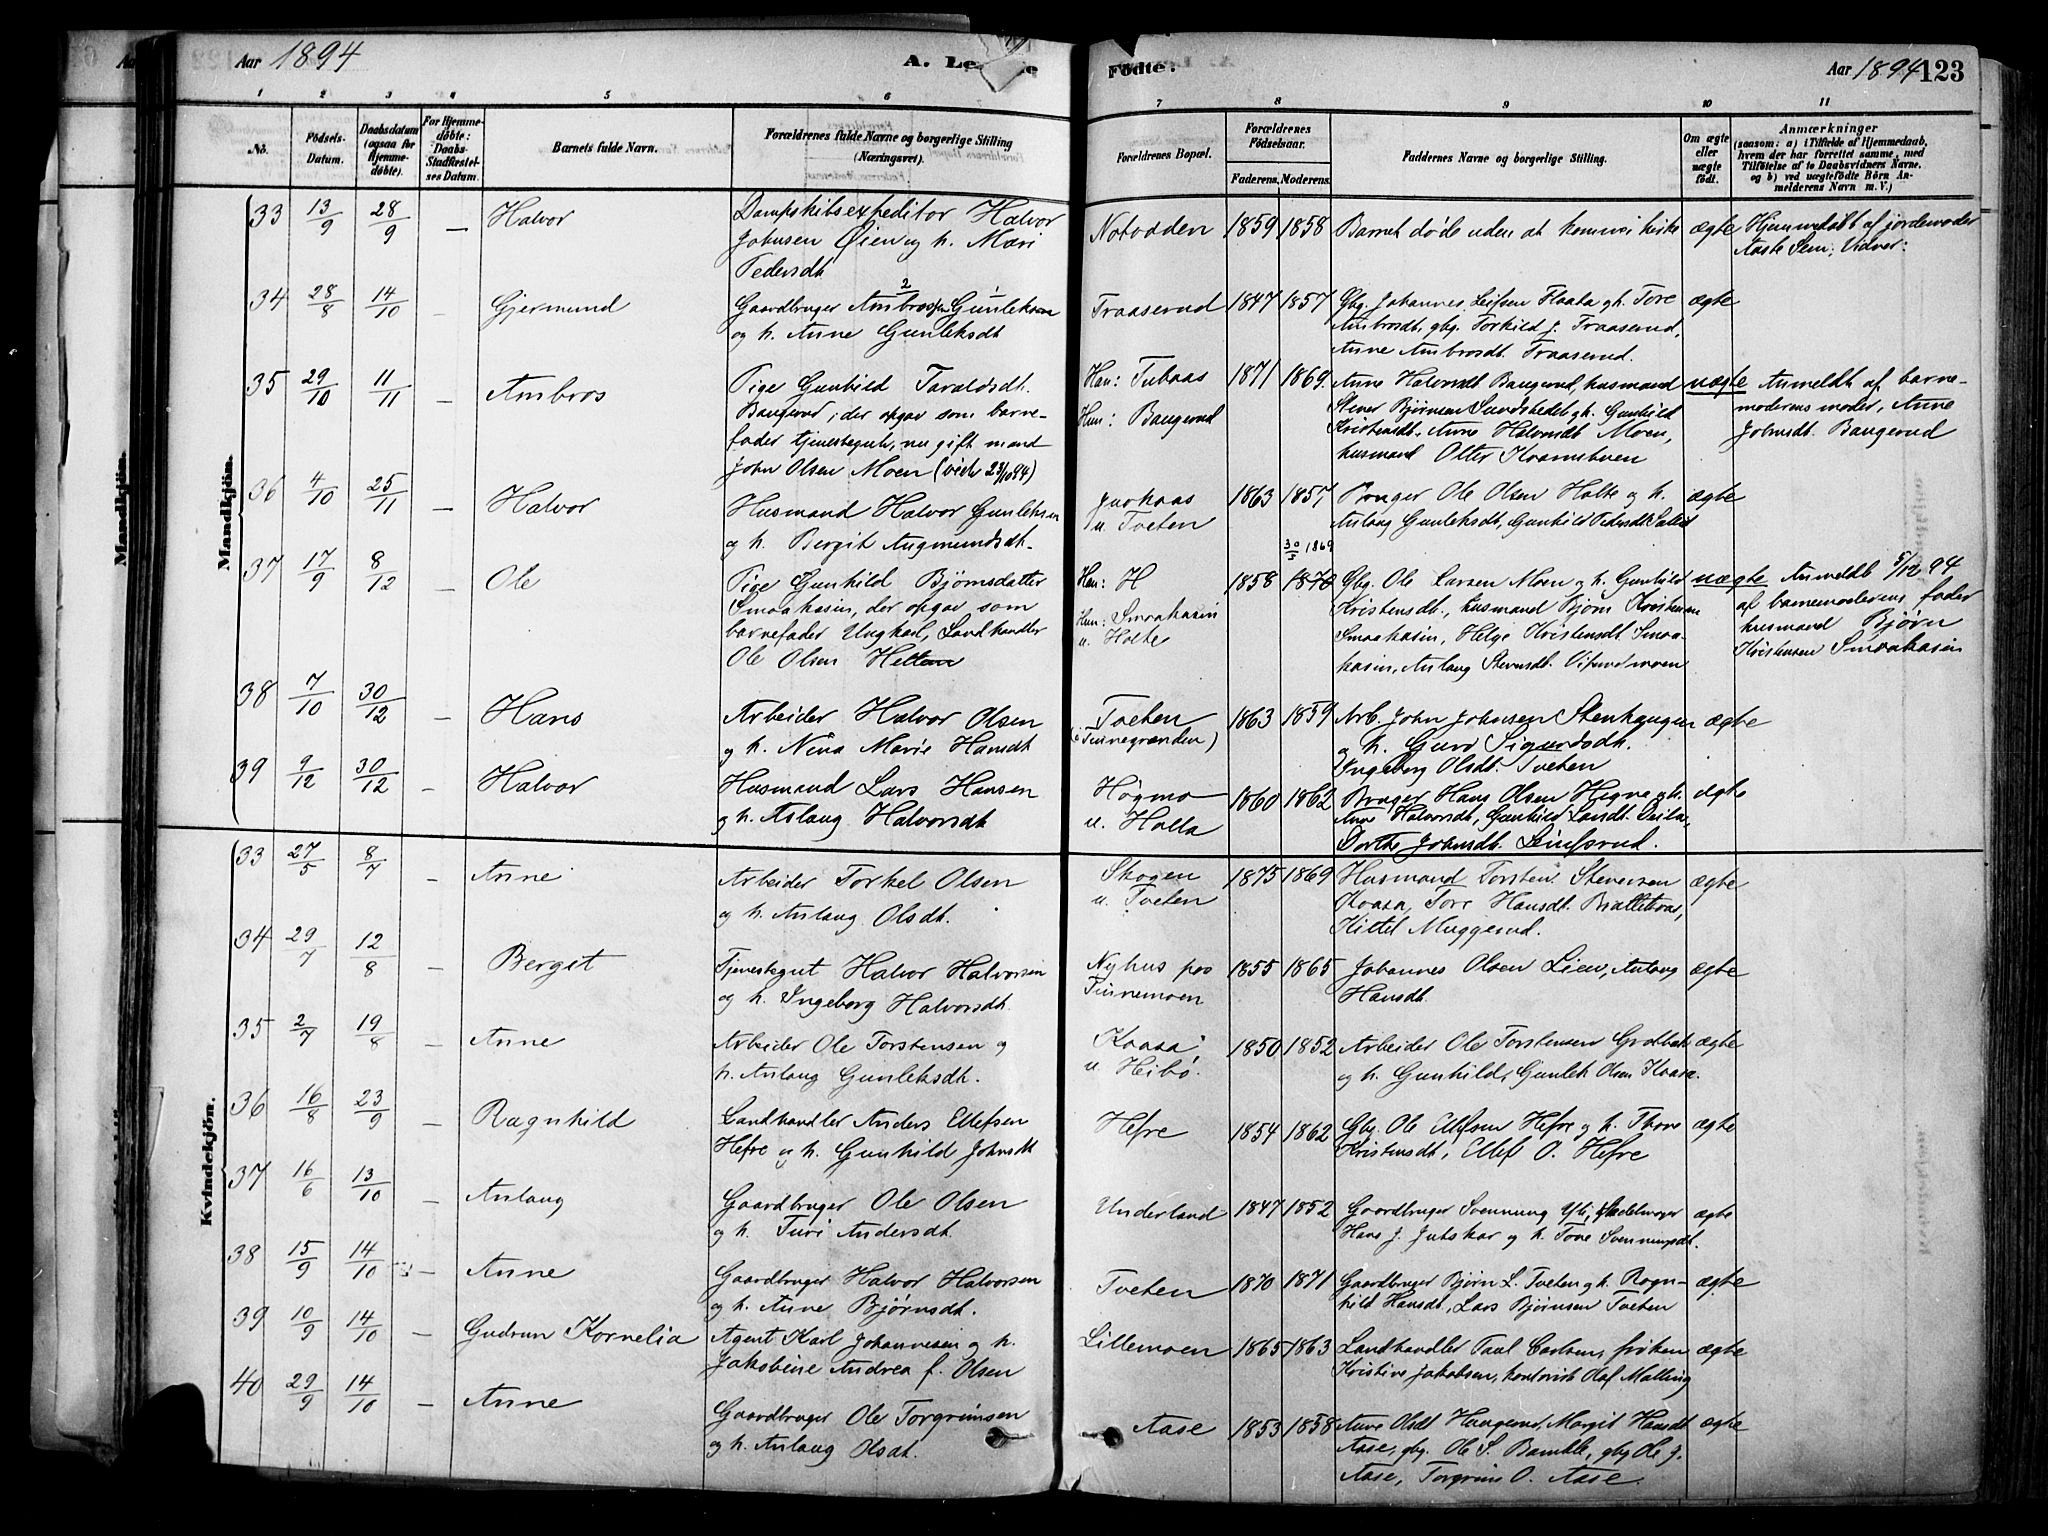 Aar 1894
A. Le
Födte.
Aar 1894
123
1
2
3
4
5
6
7
8
9
10
11
No.
Födsels-
Datum.
Daabsdatum
(ogsaa for
Hjemme-
døbte).
For Hjemme-
døbte:
Daabs-
Stadfæstel-
ses Datum.
Barnets fulde Navn.
Forældrenes fulde Navne og borgerlige Stilling
(Næringsvei).
Forældrenes Bopæl.
Forældrenes
Födselsaar.
Faderens.
Moderens.
Faddernes Navne og borgerlige Stilling.
Om ægte
eller
uægte
født.
Anmærkninger
(saasom: a) i Tilfælde af Hjemmedaab,
hvem der har forrettet samme, med
Tilföielse af to Daabsvidners Navne.
og b) ved uægtefödte Börn An-
melderens Navn m. V.)
Mandkjön.
33 13/9 28/9 — Halvor
Dampskibsexpeditor Halvor
Johnsen Øien og h. Mari
Pedersdt
Notodden 1859 1858
Barnet døde uden at komme i kirke
ægte
Hjemmedøbt af jordemoder
Aaste Sem; Vidner:
34 28/8 14/10 - Gjermund
Gaardbruger Ambros Gunleksen
og h. Anne Gunleksdt
Traaserud 1847 1857
Gbg. Johannes Leifsen Flaata og h. Tore
Ambrosdt, gbg. Torkild J. Traaserud,
Anne Ambrosdt. Traaserud.
ægte
35 29/10 11/11 — Ambros
Pige Gunhild Taraldsdt.
Baugerud; der opgav som barne-
fader tjenestegut, nu gift mand
John Olsen Moen (viede 23/10 94)
Han: Tubaas
Hun: Baugerud
1871 1869.
Anne Halvorsdt Baugerud, husmand
Stener Bjørnsen Sundstedet og h. Gunhild
Kristensdt. Anne Halvorsdt Moen,
husmand
uægte
Anmeldt af barne-
moderens moder, Anne
Johnsdt. Baugerud
36 4/10 25/11 — Halvor
Husmand Halvor Gunleksen
og h. Bergit Augmundsdt.
u. Tveten
1863 1857
Bruger Ole Olsen Holte og h.
Aslaug Gunleksdt, Gunhild Pedersdt
ægte
37 17/9 8/12 — Ole
Pige Gunhild Bjørnsdatter
Smaakasin, der opgav som
barnefader Ungkarl, Landhandler
Ole Olsen
Han: H
Hun: Smaakasin
u. Holte
1858 30/5 1869
1870
Gbg. Ole Larsen Moen og h. Gunhild
Kristensdt., husmand Bjørn Kristensen
Smaakasin, Helge Kristensdt. Smaa-
kasin, Aslaug Stenersdt.
uægte
Anmeldt 5/12 94
af barnemoderens fader
husmand Bjørn
Kristensen Smaakasin
38 7/10 30/12 — Hans
Arbeider Halvor Olsen
og h. Nina Marie Hansdt
Tveten
(i Tinnegrænden)
1863 1859
Arb. John Johnsen Stenhaugen
og h. Guro Sigurdsdt.
Ingeborg Olsdt. Tveten
ægte
39 9/12 30/12 - Halvor
Husmand Lars Hansen
og h. Aslaug Halvorsdt
Høgmo
u. Holla
1860 1862
Bruger Hans Olsen Hegna og h.
Anne Halvorsdt, Gunhild Larsdt.
Dorthe Johnsdt.
ægte
Kvindekjön.
33 27/5 8/7 — Anne
Arbeider Torkel Olsen
og h. Aslaug Olsdt.
Skogen
u. Tveten
1875 1869
Husmand Torsten Stenersen
Kaasa, Tore Hansdt.
Kittil Muggerud.
ægte
34 29/7 12/8 — Berget
Tjenestegut Halvor Halvorsen
og h. Ingeborg Halvorsdt.
Nyhus paa
Tinnemoen
1855 1865
Johannes Olsen Lien, Aslaug
Hansdt.
ægte
35 2/7 19/8 — Anne
Arbeider Ole Torstensen og
h. Aslaug Gunleksdt.
Kaasa
u. Heibø.
1850 1852
Arbeider Ole Torstensen Grotbæk
og h. Gunhild, Gunlek Olsen Kaasa.
ægte
36 16/8 23/9 — Ragnhild
Landhandler Anders Ellefsen
Hefre og h. Gunhild Johnsdt
Hefre 1854 1862
Gbg. Ole Ellefsen Hefre og h. Thone
Kristensdt, Ellef O. Hefre
ægte
37 16/6 13/10 — Aslaug
Gaardbruger Ole Olsen
og h. Turi Andersdt.
Underland 1847 1852
Gaardbruger Svennung Yli, Sadelmager
Hans J. Jutskar og h. Tone Svennungsdt.
ægte
38 15/9 14/10 — Anne
Gaardbruger Halvor Halvorsen
og h. Anne Bjørnsdt.
Tveten 1870 1871
Gaardbruger Bjørn L. Tveten og h. Ragn-
hild Hansdt, Lars Bjørnsen Tveten
ægte
39 10/9 14/10 — Gudrun Kornelia
Agent Karl Johannesen og h.
Jakobine Andrea f. Olsen
Lillemoen 1865 1863
Landhandler Paul Carlsen, frøken
Kristine Jakobsen, kontorist Olaf Malling
ægte
40 29/9 14/10 — Anne
Gaardbruger Ole Torgrimsen
og h. Aslaug Olsdt.
Aase 1853 1858
Anne Olsdt Haugerud, Margit Hansdt
Aase, gbg. Ole S. Bamble, gbg Ole J.
Aase, Torgrim O. Aase.
ægte